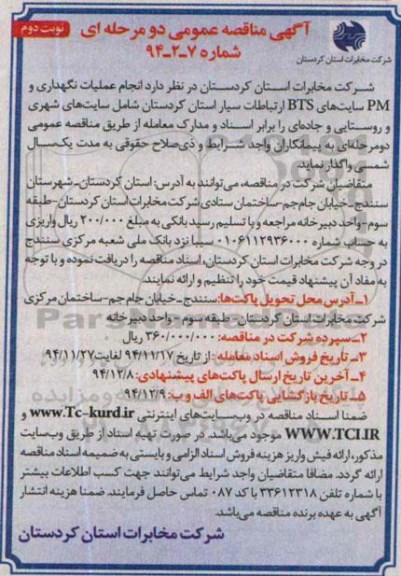 نوبت دوم
آگهی مناقصه عمومی دو مرحله ای
شماره ۷-۲-۹۴
شرکت مخابرات استان کردستان
شرکت مخابرات استان کردستان در نظر دارد انجام عملیات نگهداری و
PM سایت‌های BTS ارتباطات سیار استان کردستان شامل سایت‌های شهری
و روستایی و جاده‌ای را برابر اسناد و مدارک معامله از طریق مناقصه عمومی
دومرحله‌ای به پیمانکاران واجد شرایط و ذی‌صلاح حقوقی به مدت یک‌سال
شمسی واگذار نماید.
متقاضیان شرکت در مناقصه، می‌توانند به آدرس: استان کردستان-شهرستان
سنندج-خیابان جام جم-ساختمان ستادی شرکت مخابرات استان کردستان-طبقه
سوم-واحد دبیرخانه مراجعه و با تسلیم رسید بانکی به مبلغ ۲۰۰/۰۰۰ ریال واریزی
به حساب شماره ۰۱۰۶۱۱۲۹۳۶۰۰۰ سیبا نزد بانک ملی شعبه مرکزی سنندج
در وجه شرکت مخابرات استان کردستان، اسناد مناقصه را دریافت نموده و با توجه
به مفاد آن پیشنهاد قیمت خود را تنظیم و ارائه نمایند.
۱-آدرس محل تحویل پاکت‌ها: سنندج-خیابان جام جم-ساختمان مرکزی
شرکت مخابرات استان کردستان-طبقه سوم-واحد دبیرخانه
۲-سپرده شرکت در مناقصه: ۳۶۰/۰۰۰/۰۰۰ ریال
۳-تاریخ فروش اسناد معامله: از تاریخ ۹۴/۱۱/۱۷ لغایت ۹۴/۱۱/۲۷
۴-آخرین تاریخ ارسال پاکت‌های پیشنهادی: ۹۴/۱۲/۸
۵-تاریخ بازگشایی پاکت‌های الف و ب: ۹۴/۱۲/۹
ضمنا اسناد مناقصه در وب‌سایت‌های اینترنتی www.Tc-kurd.ir و
WWW.TCI.IR موجود می‌باشد. در صورت تهیه اسناد از طریق وب‌سایت
مذکور، ارائه فیش واریز هزینه فروش اسناد الزامی و بایستی به ضمیمه اسناد مناقصه
ارائه گردد. مضافا متقاضیان واجد شرایط می‌توانند جهت کسب اطلاعات بیشتر
با شماره تلفن ۳۳۶۱۲۳۱۸ با کد ۰۸۷ تماس حاصل فرمایند. ضمنا هزینه انتشار
آگهی به عهده برنده مناقصه می‌باشد.
شرکت مخابرات استان کردستان